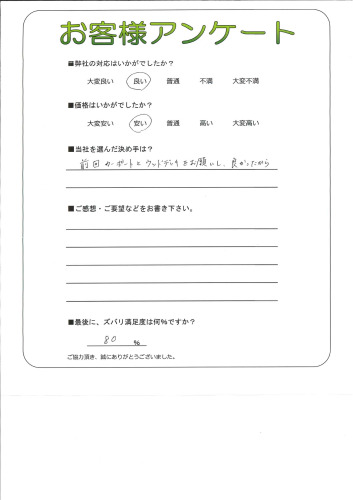 お客様アンケート
■弊社の対応はいかがでしたか？
大変良い 良い 普通 不満 大変不満
■価格はいかがでしたか？
大変安い 安い 普通 高い 大変高い
■当社を選んだ決め手は？
前回カーポートとウッドデッキをお願いし、良かったから
■ご感想・ご要望などをお書き下さい。
■最後に、ズバリ満足度は何％ですか？
80 ％
ご協力頂き、誠にありがとうございました。